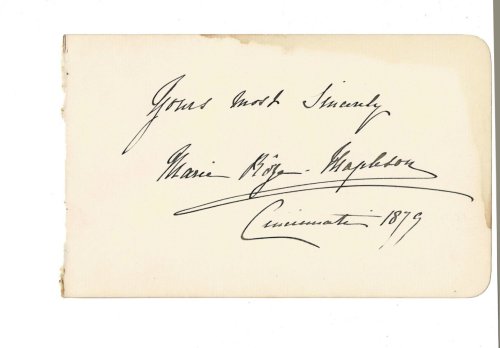 Yours most Sincerely
Marie Rôze-Mapleson
Cincinnati 1879